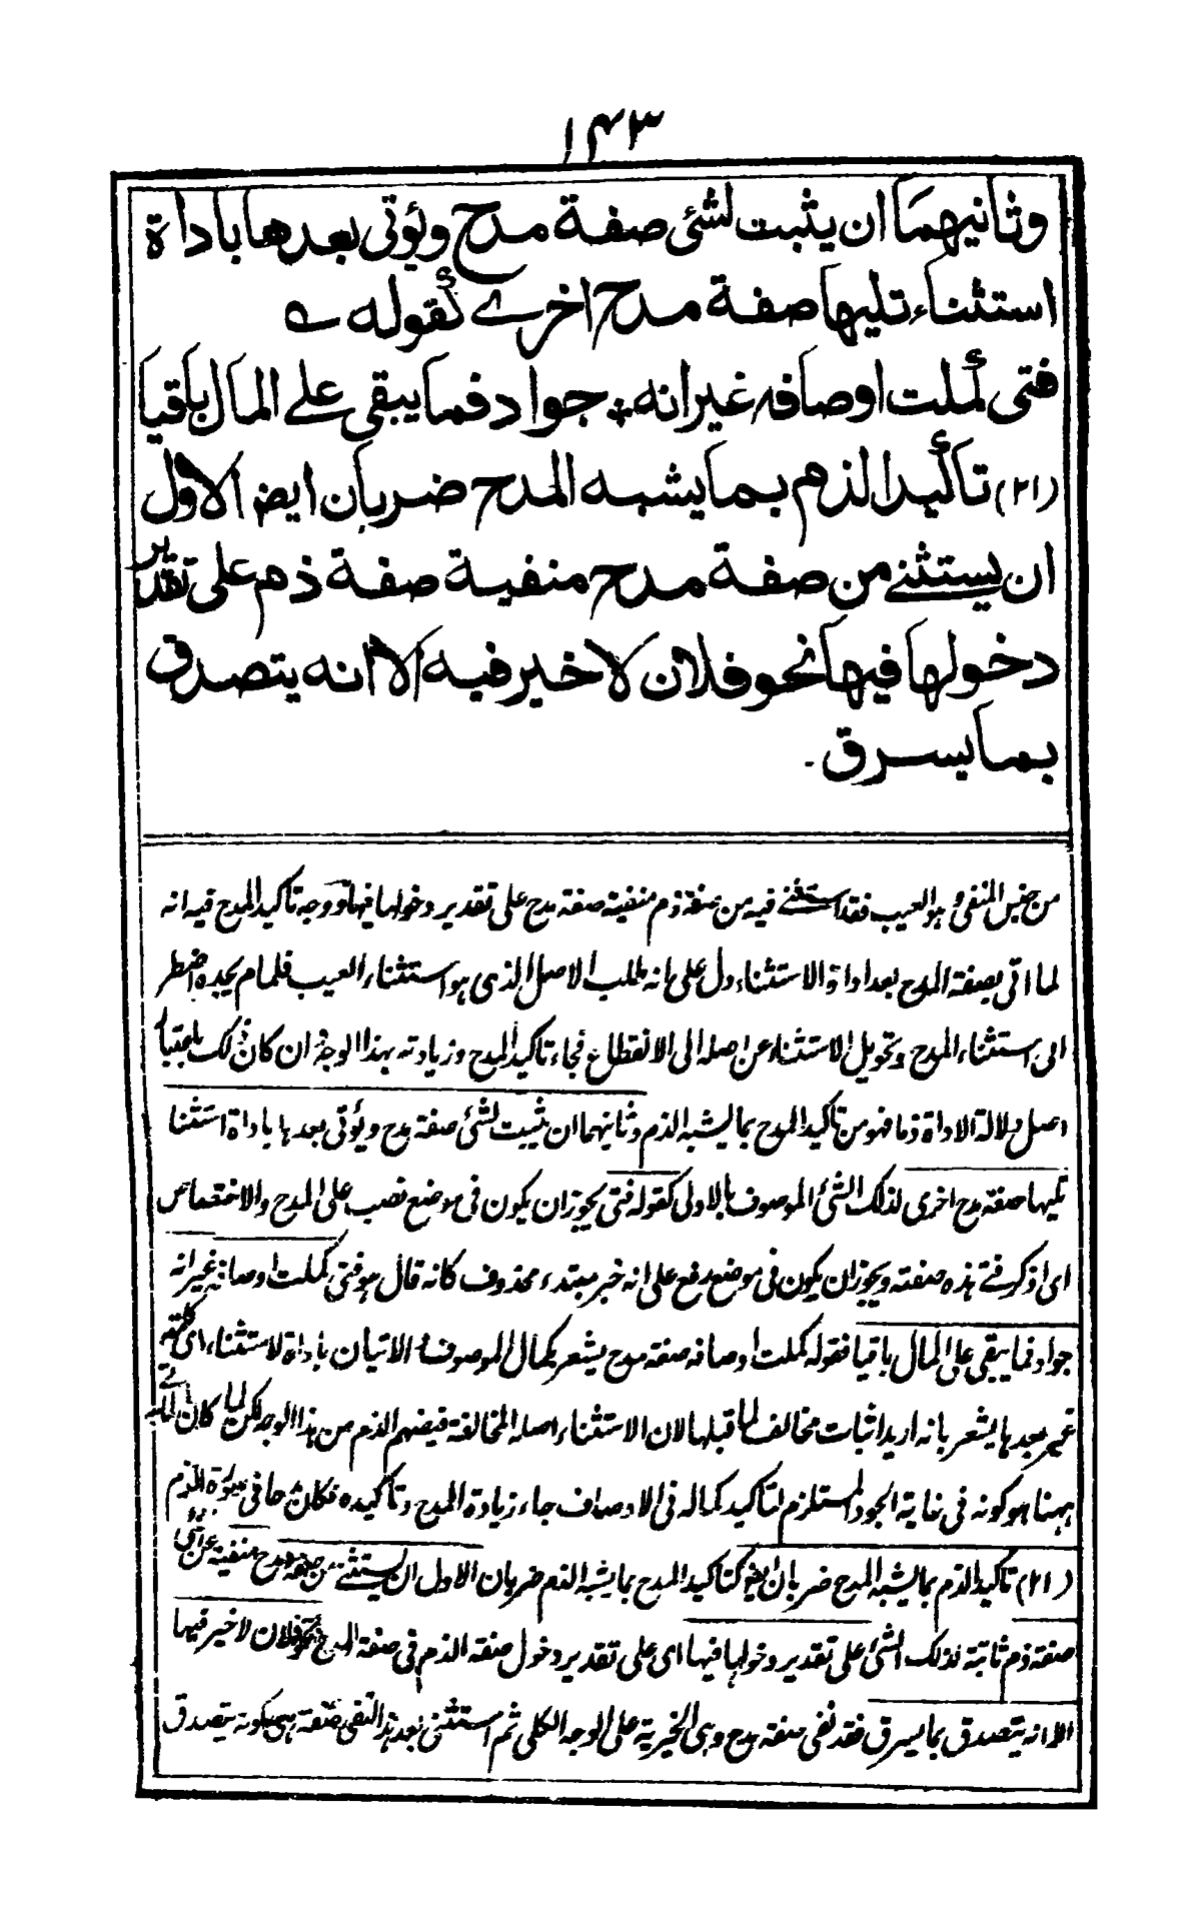 ١٤٣
وثانيهما ان يثبت لشئ صفة مدح ويؤتى بعدها باداة
استثناء تليها صفة مدح اخرے كقوله ؎
فتى كملت اوصافه غير انه ٭ جواد فما يبقى على المال باقيا
(٢١) تأكيد الذم بما يشبه المدح ضربان ايضا الاول
ان يستثنے من صفة مدح منفية صفة ذم على تقدير
دخولها فيها نحو فلان لا خير فيه الا انه يتصدق
بما يسرق .
من جنس المنفى وهو العيب فقد استثنے فيه من صفة ذم منفية صفة مدح على تقدير دخولها فيها ووجه تاكيد المدح فيه انه
لما اتى بصفة المدح بعد اداة الاستثناء دل على انه طلب الاصل الذى هو استثناء العيب فلما لم يجده اضطر
الى استثناء المدح وتحويل الاستثناء عن اصله الى الانقطاع فجاء تاكيد المدح وزيادته بهذا الوجه وان كان ذلك باعتبار
اصل دلالة الاداة ذما فهو من تاكيد المدح بما يشبه الذم وثانيهما ان يثبت لشئ صفة مدح ويؤتى بعدها باداة استثناء
تليها صفة مدح اخرى لذلك الشئ الموصوف بالاولى كقوله فتى يجوز ان يكون فى موضع نصب على المدح والاختصاص
اى اذكر فتے هذه صفته ويجوز ان يكون فى موضع رفع على انه خبر مبتدء محذوف كانه قال هو فتى كملت اوصافه غير انه
جواد فما يبقى على المال باقيا فقوله كملت اوصافه صفة مدح يشعر بكمال الموصوف والاتيان باداة الاستثناء اى كلمة
غير بعدها يشعر بانه اريد اثبات مخالف لما قبلها لان الاستثناء اصله المخالفة فيفهم الذم من هذا الوجه لكن لما كان
ههنا هو كونه فى غاية الجود المستلزم لتاكيد كماله فى الاوصاف جاء زيادة المدح وتاكيده فكان مدحا فى صورة الذم
(٢١) تاكيد الذم بما يشبه المدح ضربان ايضا كتاكيد المدح بما يشبه الذم ضربان الاول ان يستثنے من صفة مدح منفية عن شئ
صفة ذم ثابتة لذلك الشئ على تقدير دخولها فيها اى على تقدير دخول صفة الذم فى صفة المدح نحو فلان لا خير فيها
الا انه يتصدق بما يسرق فقد نفى صفة مدح وهى الخيرية على الوجه الكلى ثم استثنى بعد هذا النفى صفة هى كونه يتصدق